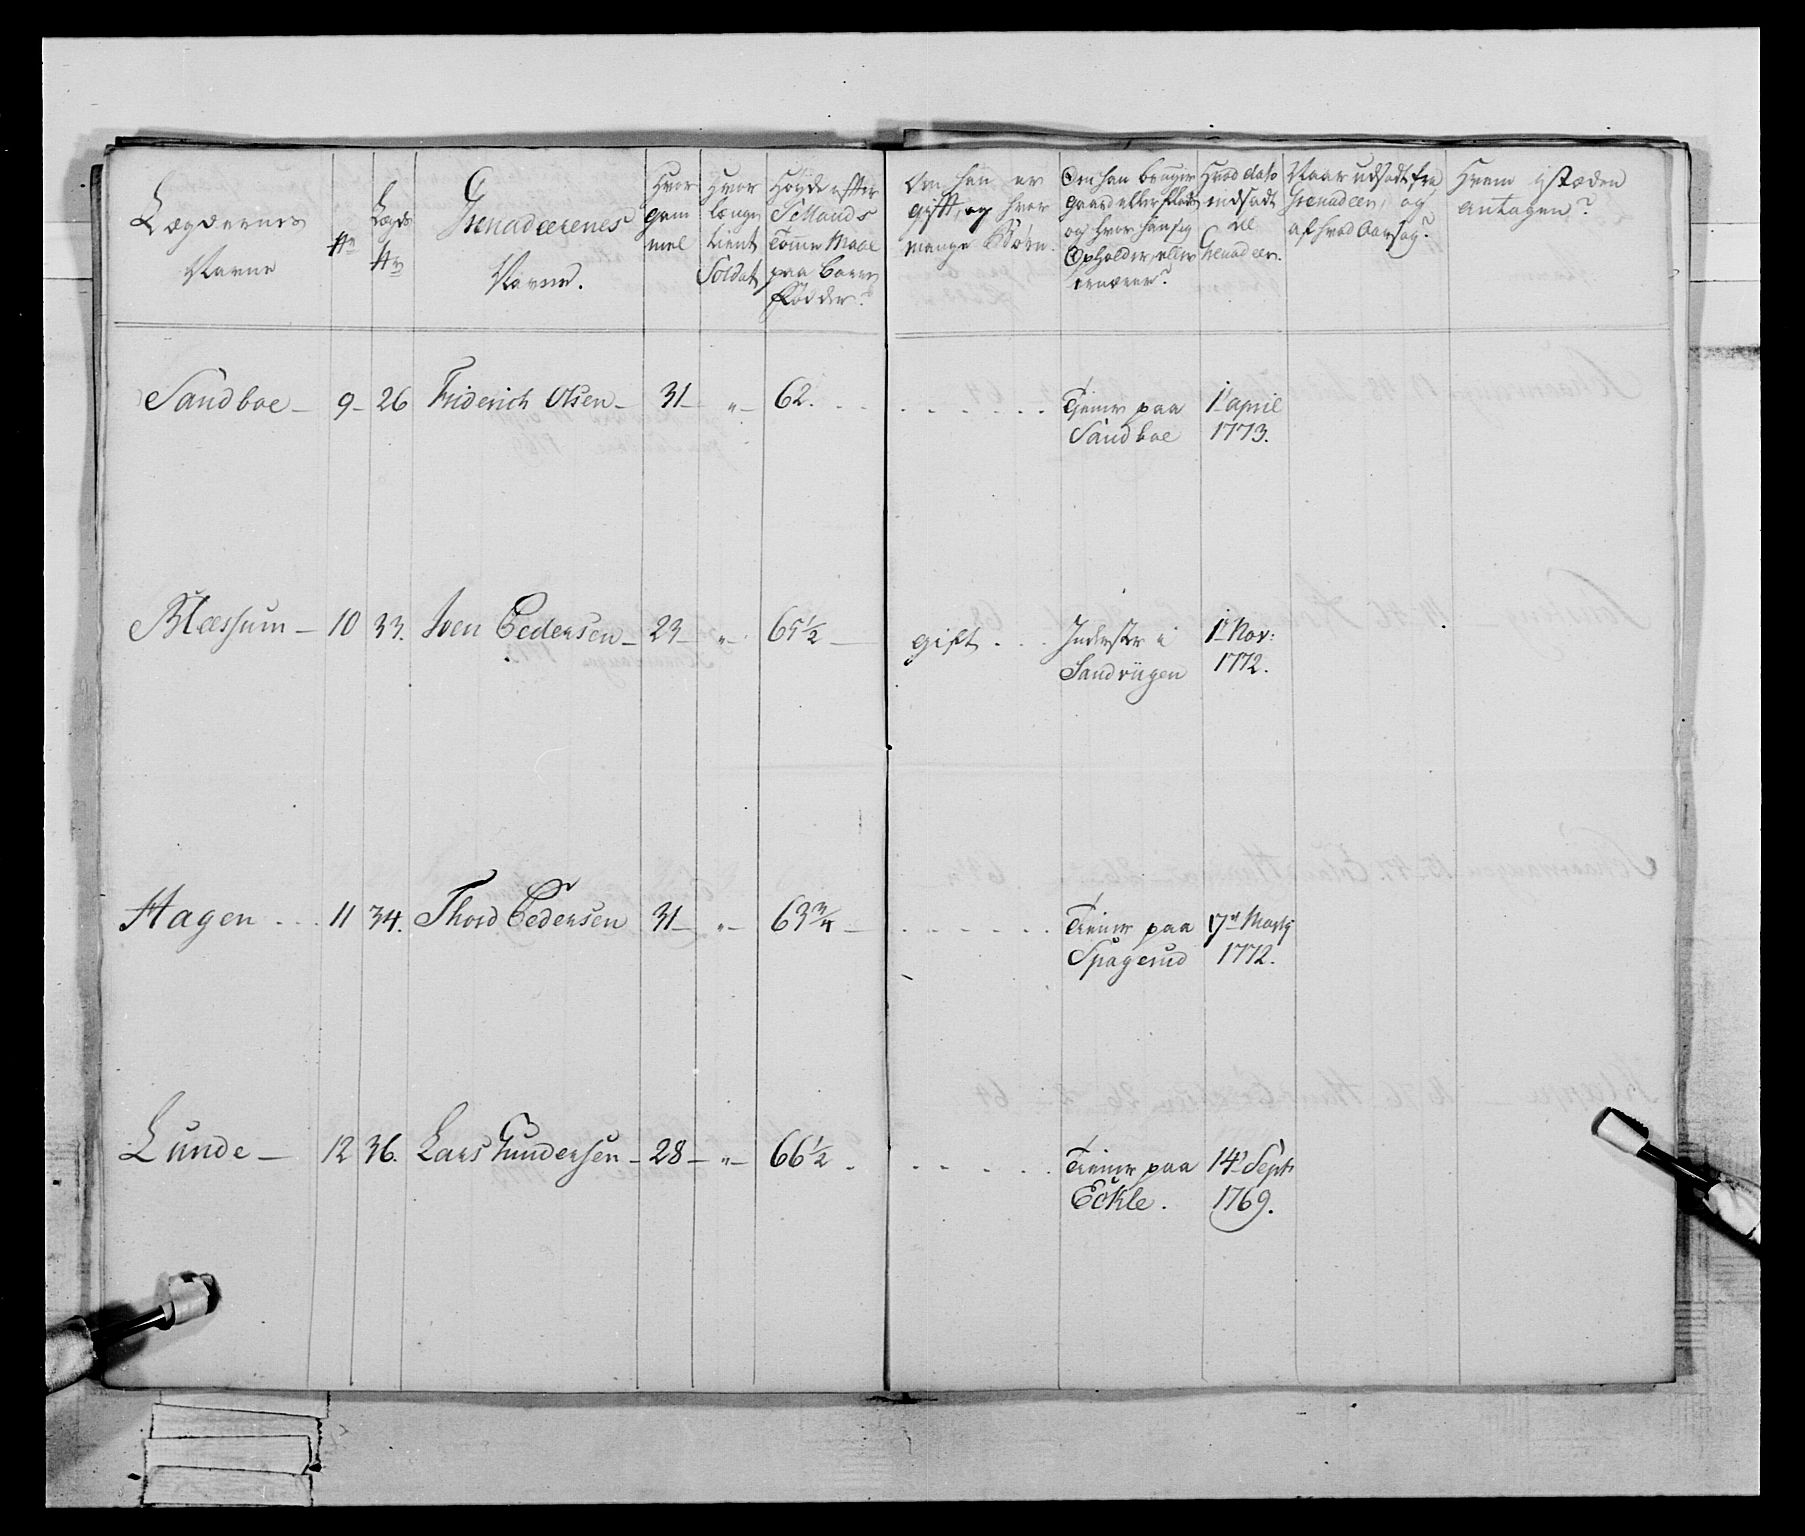 Lægdernes
Navne
No
Lægds
No
Grenadeerenes
Navne.
Hvor
gam
mel
Hvor
længe
tient
Soldat
Høyde efter
Tomme Maal
paa baare
Fødder?
Om han er
gift, og hvor
mange Børn.
Om han bruger
gaard eller
og hvor han sig
Opholder, eller
Hvad dato
indsadt
til
Grenadeer.
Naar udsadt fra
Grenadeer, og
af hvad Aarsag?
Hvem istæden
antagen?
Sandboe - 9 - 26 Friderich Olsen - 31 - " - 62. . . . . . . . .
Tiener paa
Sandboe
1 april
1773.
Blæssum - 10 33. Iven Pedersen - 23 - " - 65 1/2 - gift . . .
Inderster i
Sandviigen
1 Nov:
1772.
Hagen . . . 11 34. Thord Pedersen 31 - " - 63 3/4 - . . . . . .
Tiener paa
Spagerud
17 Martij
1772.
Lunde - 12 36. Lars Gundersen - 28 - " - 66 1/2 . . . . . .
Tiener paa
Eckle.
14 Sept
1769.